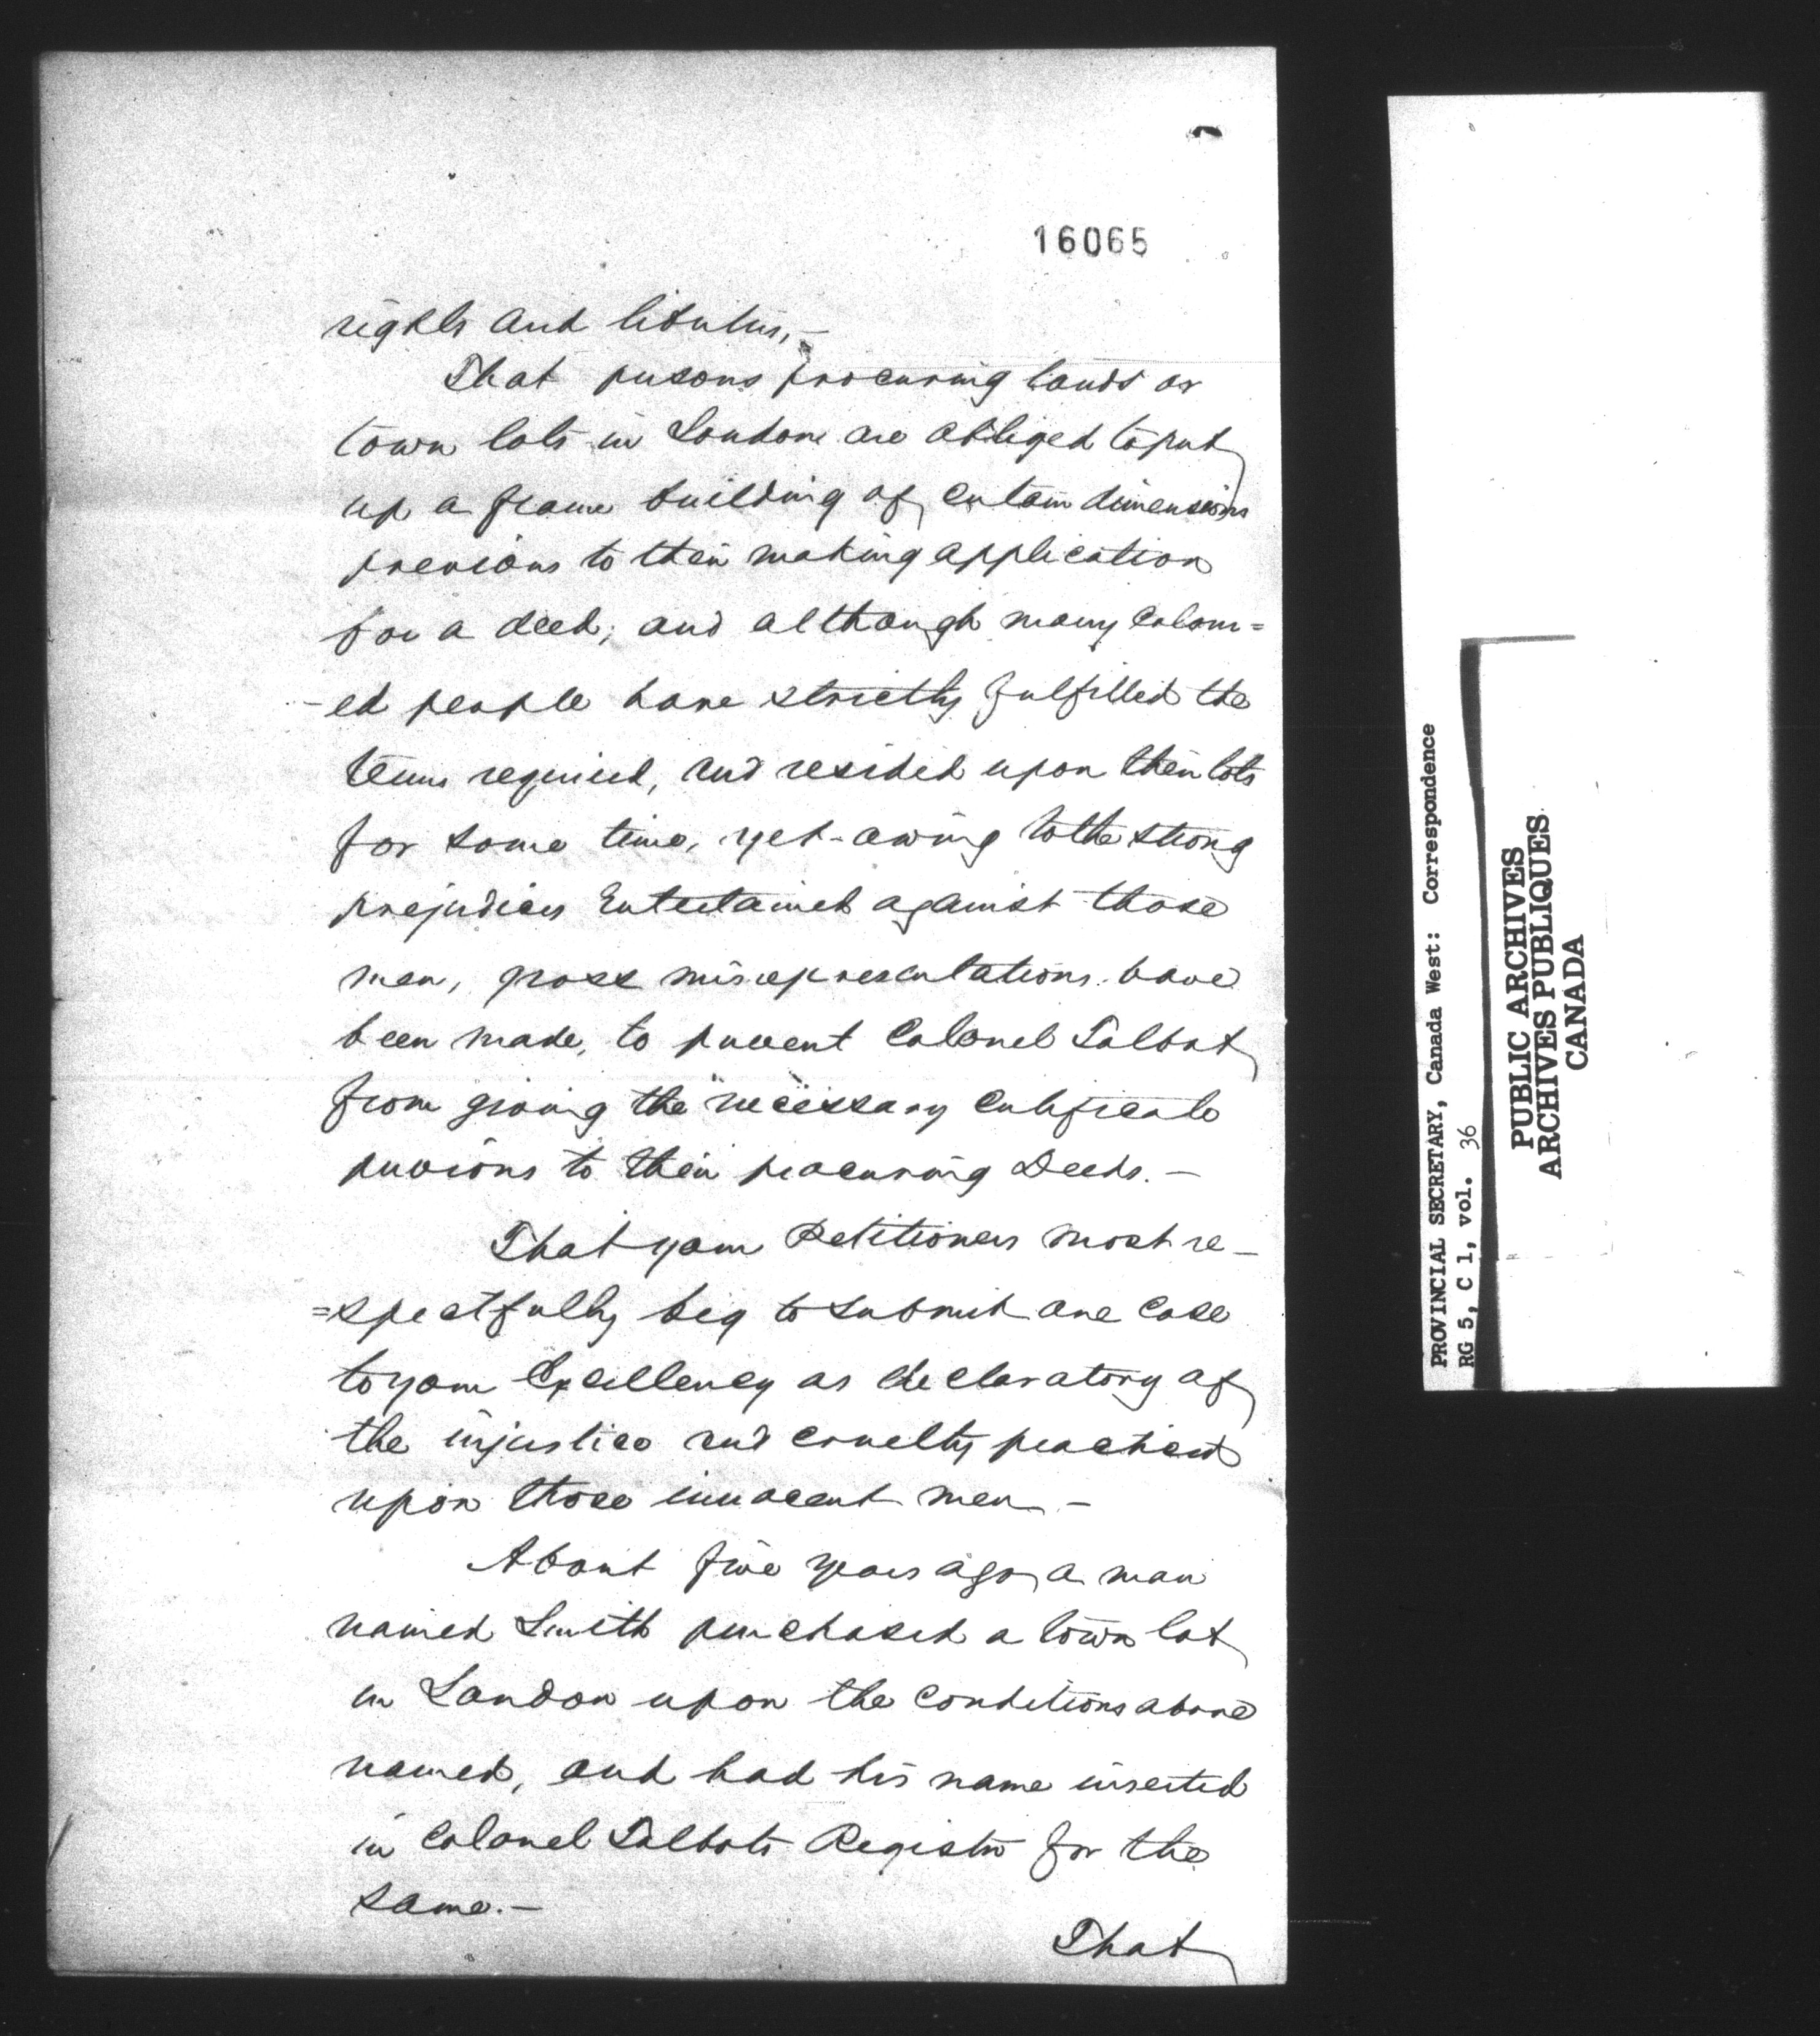 16065
rights and liberties,—
That persons procuring lands or
town lots in London are obliged to put
up a frame building of certain dimensions
previous to their making application
for a deed; and although many colour=
-ed people have strictly fulfilled the
terms required, and resided upon their lots
for some time, yet owing to the strong
prejudices entertained against those
men, gross misrepresentations have
been made, to prevent Colonel Talbot
from giving the necessary certificate
previous to their procuring Deeds.—
That your Petitioners most re-
=spectfully beg to submit one case
to your Excellency as declaratory of
the injustice and cruelty practised
upon those innocent men.—
About five years ago, a man
named Smith purchased a town lot
in London upon the conditions above
named, and had his name inserted
in Colonel Talbots Register for the
same.—
That
PROVINCIAL SECRETARY, Canada West: Correspondence
RG 5, C 1, vol. 36
PUBLIC ARCHIVES
ARCHIVES PUBLIQUES
CANADA